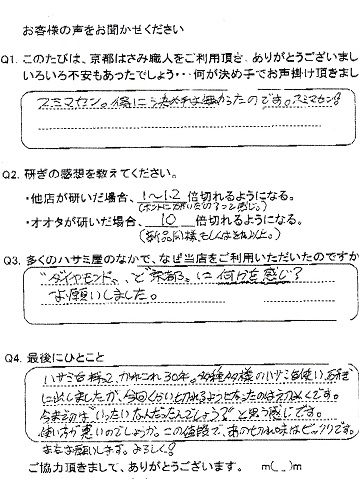 お客様の声をお聞かせください
Q1. このたびは、京都はさみ職人をご利用頂き、ありがとうございまし
いろいろ不安もあったでしょう・・・何が決め手でお声掛け頂きまし
スミマセン。特に決め手は無かったのです。スミマセン!
Q2. 研ぎの感想を教えてください。
・他店が研いだ場合、1〜1.2 倍切れるようになる。
・オオタが研いだ場合、10 倍切れるようになる。
(新品同様もしくはそれ以上。)
Q3. 多くのハサミ屋のなかで、なぜ当店をご利用いただいたのですか
"ダイヤモンド"、と"京都"、に何かを感じ?
お願いしました。
Q4. 最後にひとこと
ハサミを持って、かれこれ30年。多種多様のハサミを使い、研ぎ
に出しましたが、今回くらい切れるようになったのは初めてです。
今までのは"いったいなんだったんでしょう?"と思う感じです。
使い方が悪いのでしょうか。この値段で、あの切れ味はビックリです。
またお願いします。よろしく!
ご協力頂きまして、ありがとうございます。 m(_)m